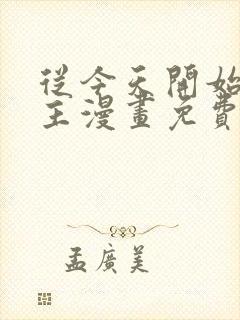 從今天開始
主漫畫免費
孟廣美